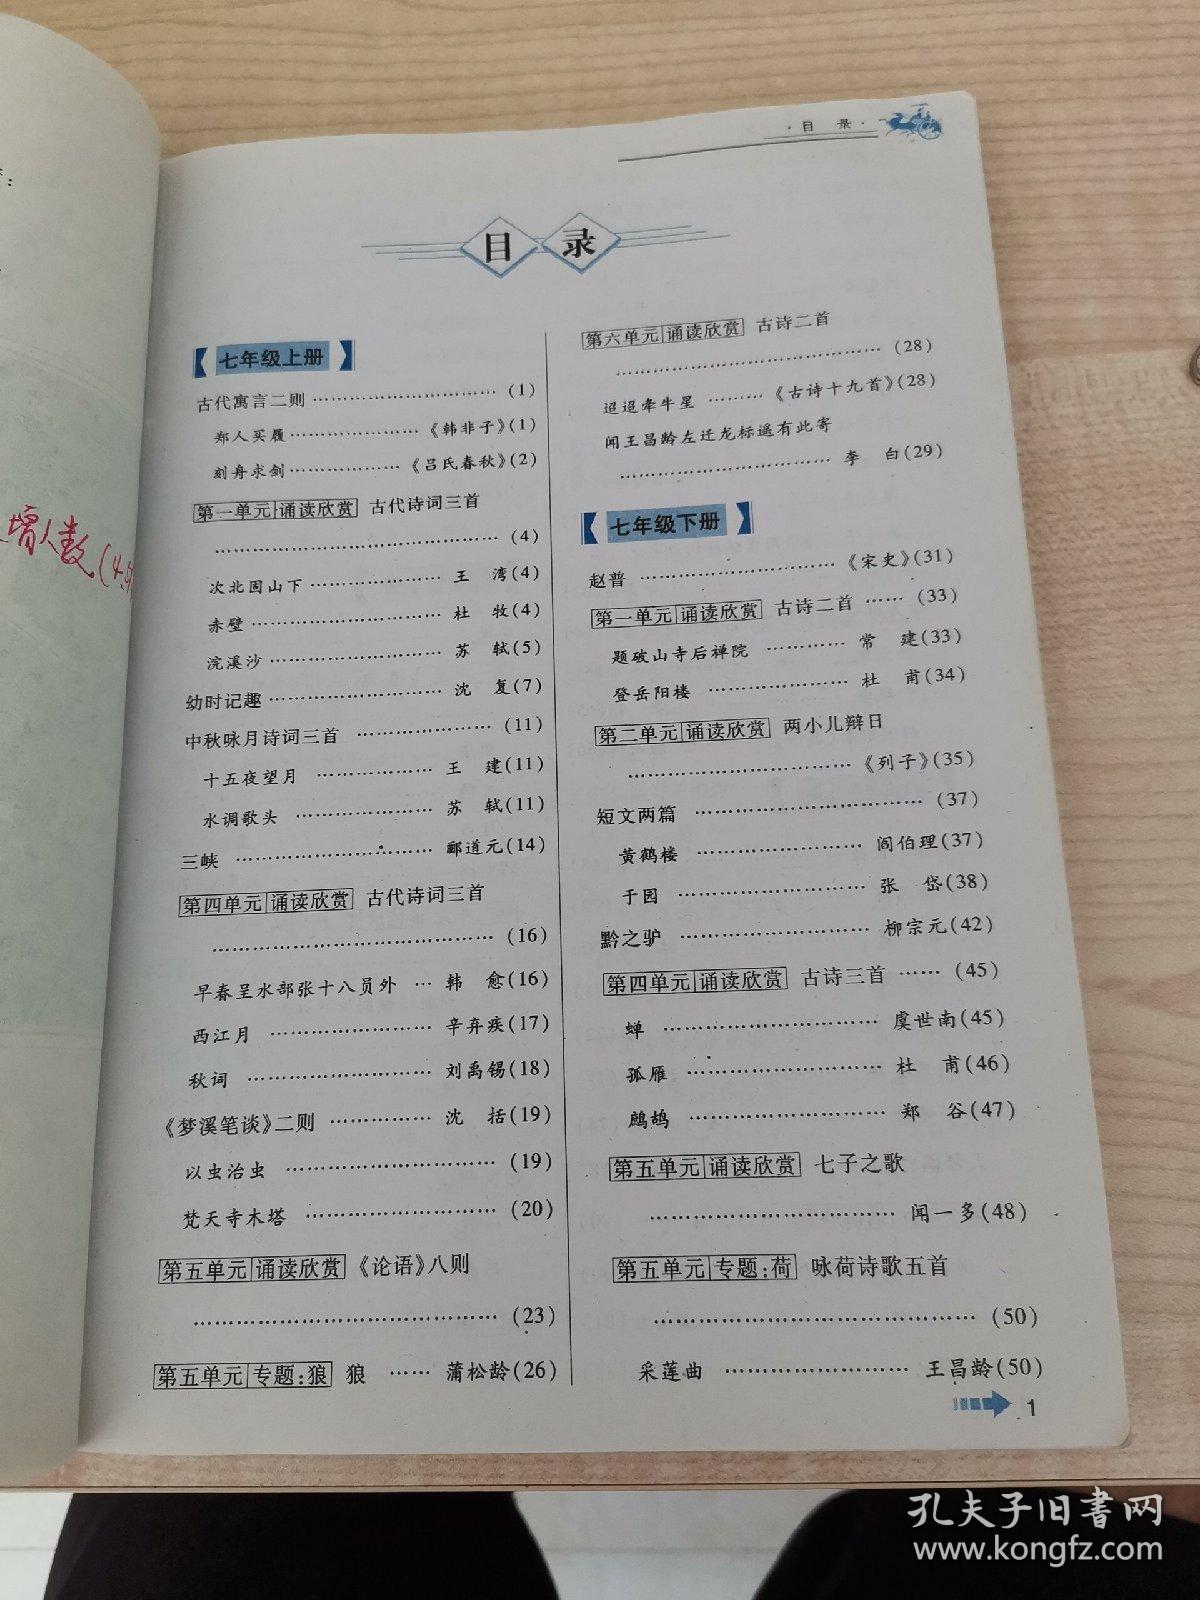 ·目 录·
目录
七年级上册
古代寓言二则……………………………(1)
郑人买履……………………《韩非子》(1)
刻舟求剑…………………《吕氏春秋》(2)
第一单元 诵读欣赏 古代诗词三首
……………………………………………(4)
次北固山下……………………王 湾(4)
赤壁……………………………杜 牧(4)
浣溪沙…………………………苏 轼(5)
幼时记趣…………………………沈 复(7)
中秋咏月诗词三首……………………(11)
十五夜望月…………………王 建(11)
水调歌头……………………苏 轼(11)
三峡………………………………郦道元(14)
第四单元 诵读欣赏 古代诗词三首
……………………………………………(16)
早春呈水部张十八员外…韩 愈(16)
西江月…………………………辛弃疾(17)
秋词……………………………刘禹锡(18)
《梦溪笔谈》二则………………沈 括(19)
以虫治虫………………………………(19)
梵天寺木塔……………………………(20)
第五单元 诵读欣赏 《论语》八则
……………………………………………(23)
第五单元 专题:狼 狼……蒲松龄(26)
第六单元 诵读欣赏 古诗二首
……………………………………………(28)
迢迢牵牛星………《古诗十九首》(28)
闻王昌龄左迁龙标遥有此寄
…………………………………李 白(29)
七年级下册
赵普………………………………《宋史》(31)
第一单元 诵读欣赏 古诗二首……(33)
题破山寺后禅院…………常 建(33)
登岳阳楼……………………杜 甫(34)
第二单元 诵读欣赏 两小儿辩日
…………………………………《列子》(35)
短文两篇…………………………………(37)
黄鹤楼…………………………阎伯理(37)
于园……………………………张 岱(38)
黔之驴……………………………柳宗元(42)
第四单元 诵读欣赏 古诗三首……(45)
蝉………………………………虞世南(45)
孤雁……………………………杜 甫(46)
鹧鸪……………………………郑 谷(47)
第五单元 诵读欣赏 七子之歌
…………………………………闻一多(48)
第五单元 专题:荷 咏荷诗歌五首
……………………………………………(50)
采莲曲…………………………王昌龄(50)
1
增人数
孔夫子旧书网
www.kongfz.com